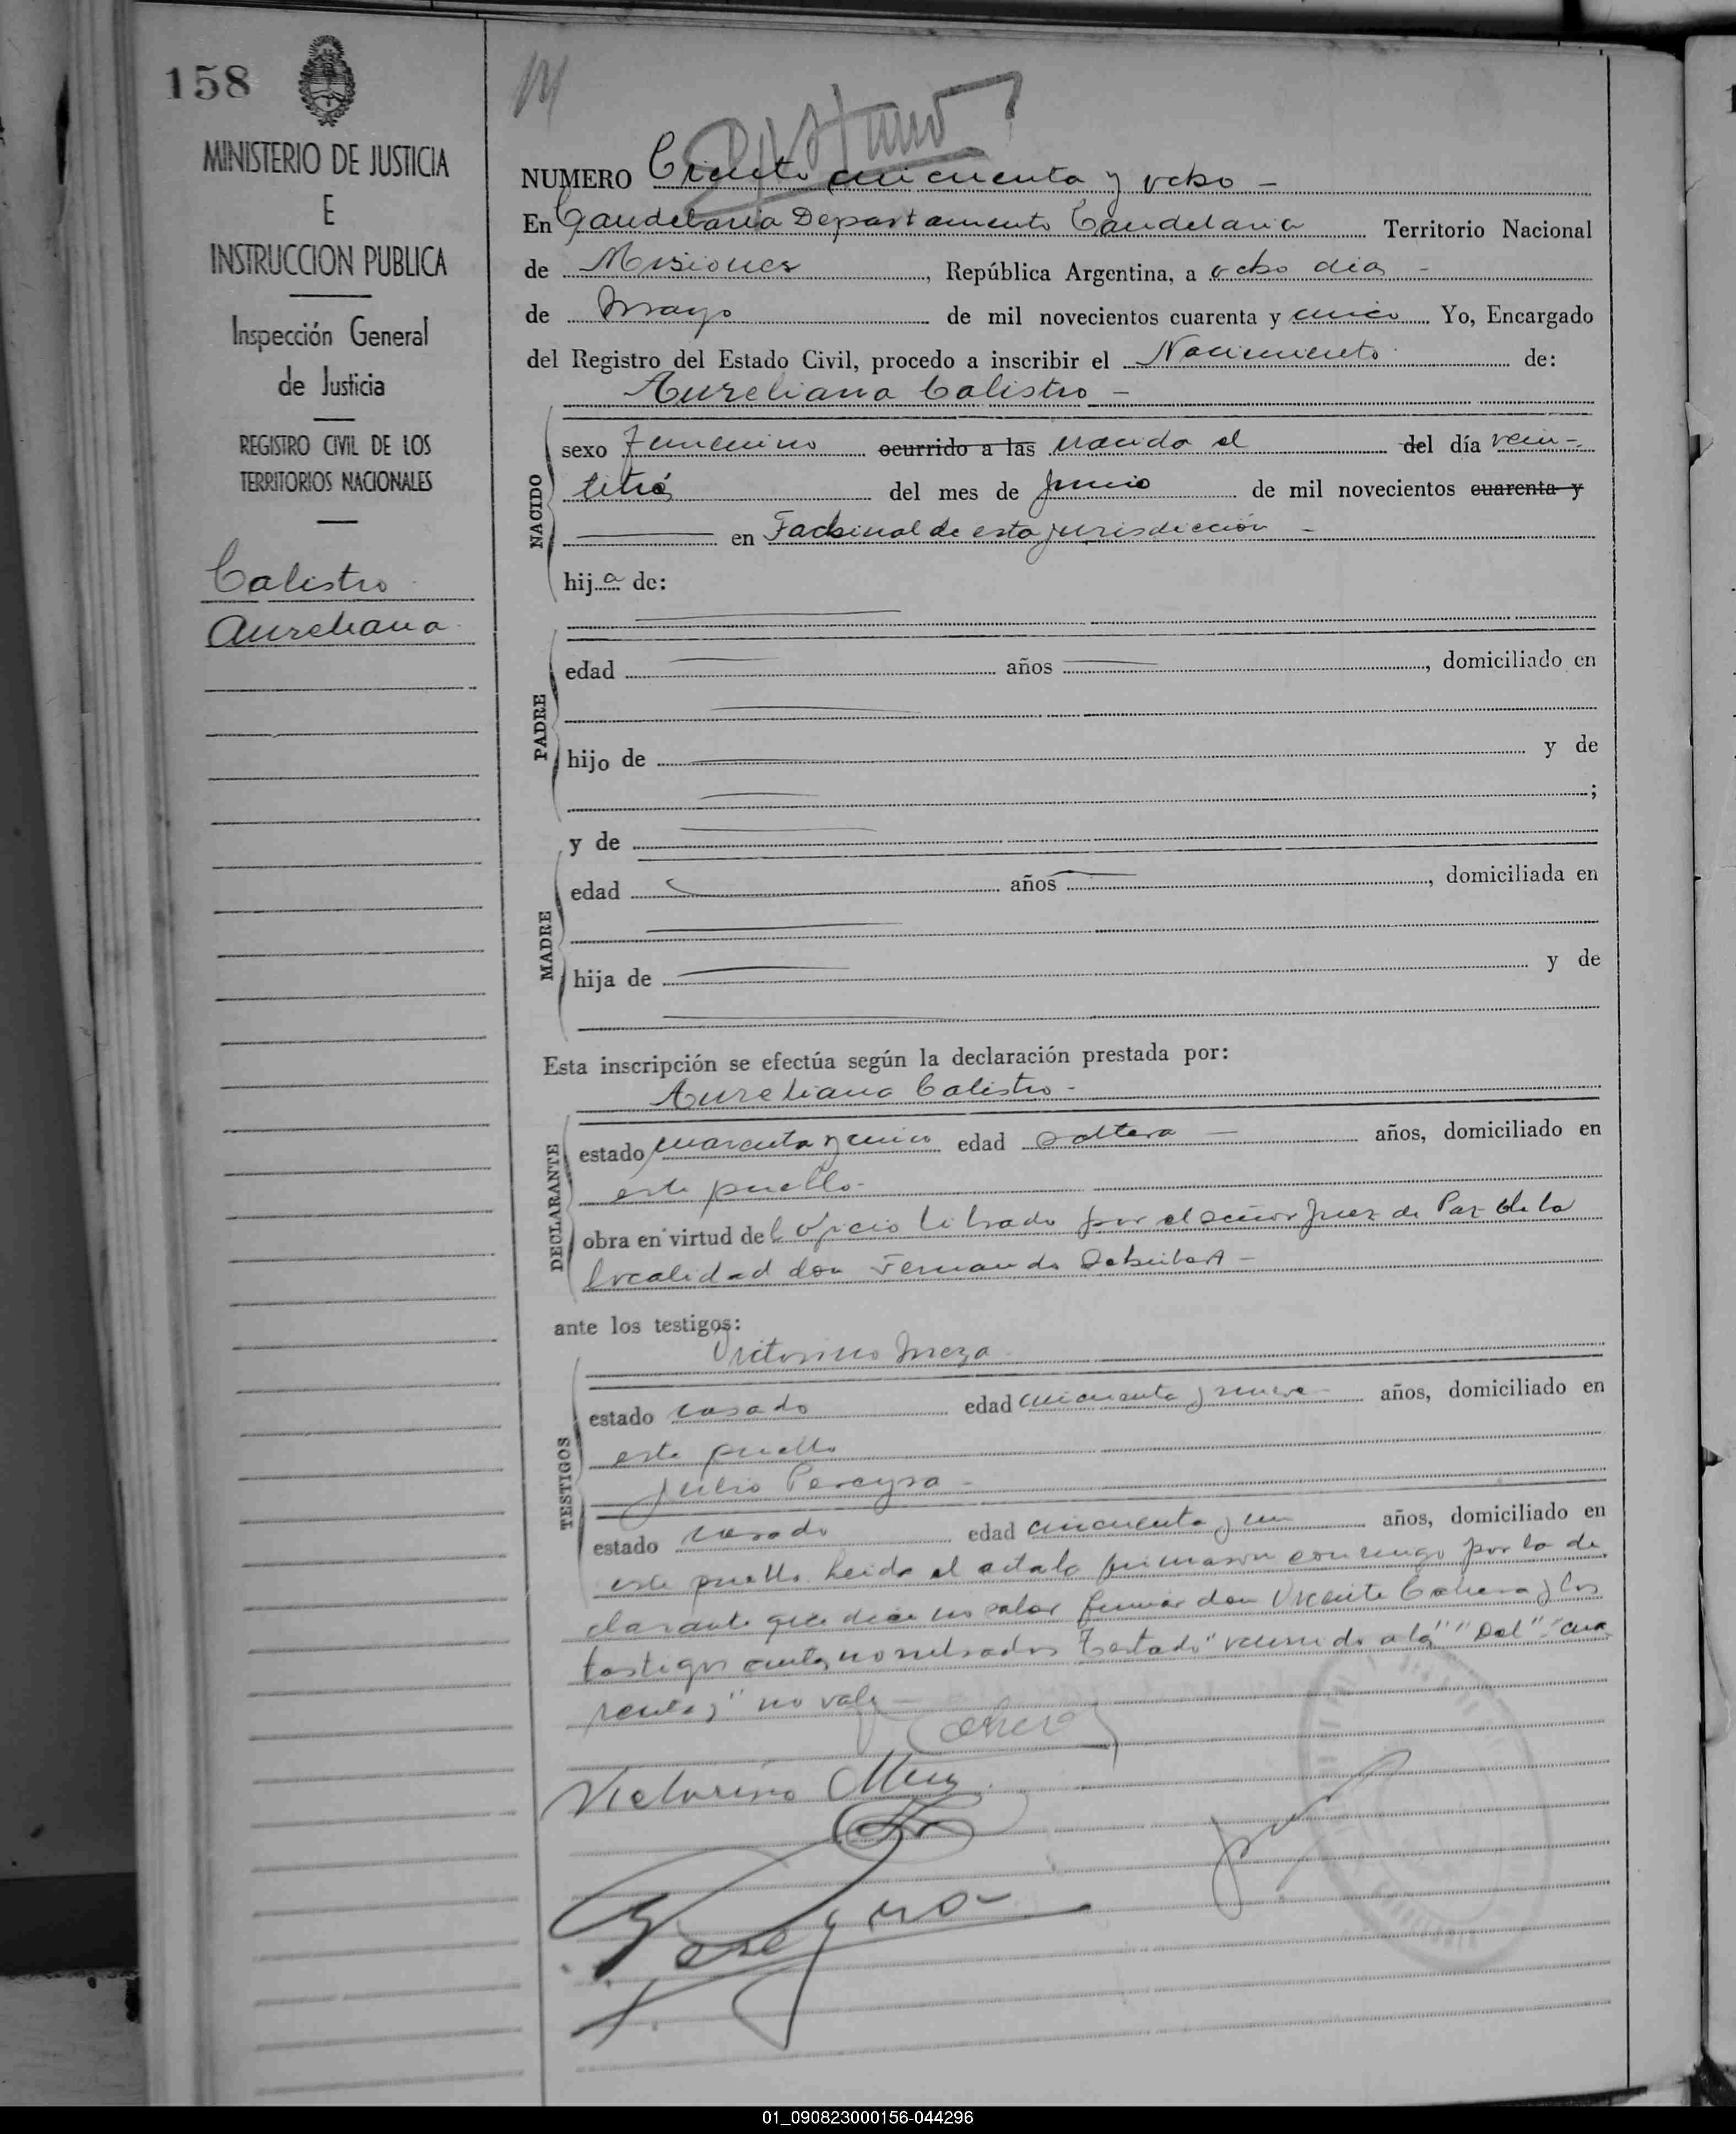 158
MINISTERIO DE JUSTICIA
E
INSTRUCCION PUBLICA
Inspección General
de Justicia
REGISTRO CIVIL DE LOS
TERRITORIOS NACIONALES
Calistro
Aureliana
NUMERO Ciento cincuenta y ocho -
En Candelaria Departamento Candelaria Territorio Nacional
de Misiones, República Argentina, a ocho dias -
de Mayo de mil novecientos cuarenta y cinco Yo, Encargado
del Registro del Estado Civil, procedo a inscribir el Nacimiento de:
Aureliana Calistro -
NACIDO
sexo Femenino ocurrido a las nacida el del día vein-
titrés del mes de Junio de mil novecientos cuarenta y
en Fachinal de esta jurisdicción -
hija de:
PADRE
edad años, domiciliado en
hijo de y de
;
y de
MADRE
edad años, domiciliada en
hija de y de
Esta inscripción se efectúa según la declaración prestada por:
Aureliana Calistro -
DECLARANTE
estado cuarenta y cinco edad Soltera - años, domiciliado en
este pueblo -
obra en virtud del oficio librado por el señor Juez de Paz de la
localidad don Fernando -
ante los testigos:
Victorino Meza
TESTIGOS
estado casado edad cincuenta y nueve años, domiciliado en
este pueblo
Julio Pereyra -
estado casado edad cincuenta y un años, domiciliado en
este pueblo. Leida el acta la firmaron conmigo por la de
clarante que dice no saber firmar don Vicente Cabrera y los
testigos antes nombrados Testado "ocurrido a las" "Del" "cua
renta y" no vale -
Cabrera
Victorino Meza
Pereyra
01_090823000156-044296